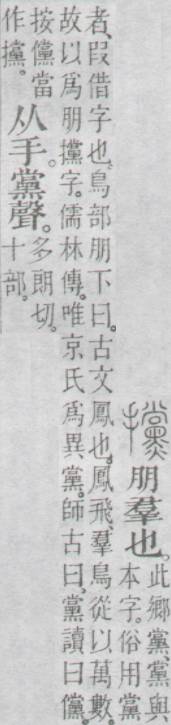 攩朋羣也。此鄉黨、黨與
本字。俗用黨
者、叚借字也。鳥部朋下曰。古文鳳也。鳳飛、羣鳥從以萬數。
故以爲朋攩字。儒林傳。唯京氏爲異黨。師古曰、黨讀曰儻。
按儻當
作攩。
从手。黨聲。多朗切。
十部。